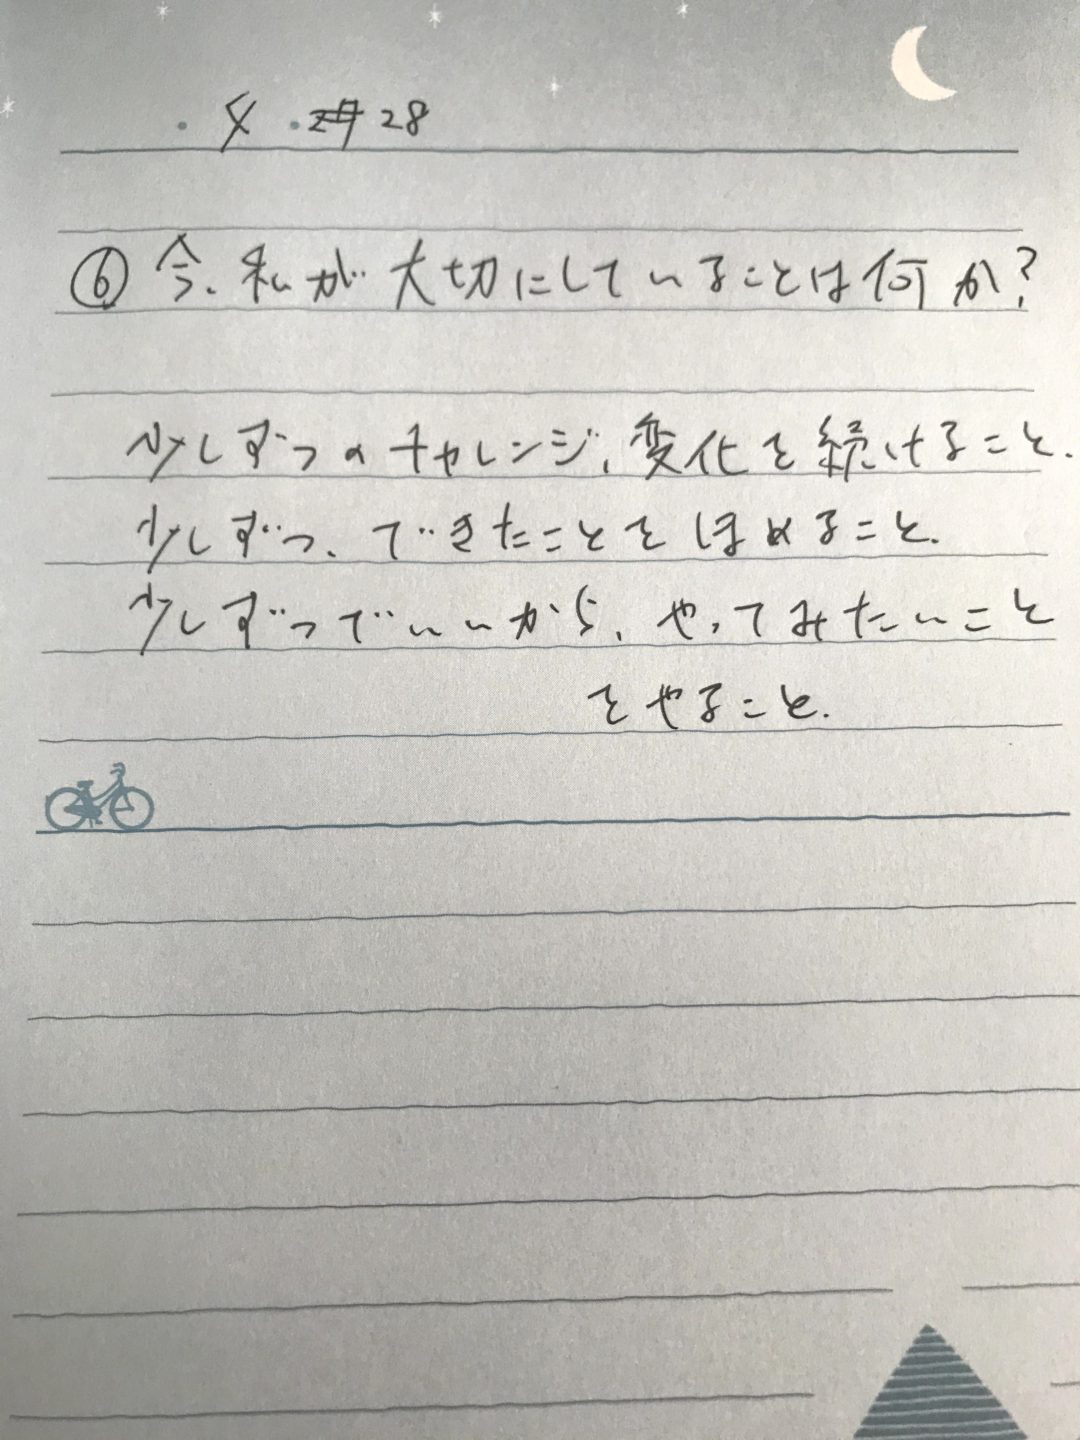 ・4・28
⑥今、私が大切にしていることは何か?
少しずつのチャレンジ、変化を続けること.
少しずつ、できたことをほめること.
少しずつでいいから、やってみたいこと
をやること.